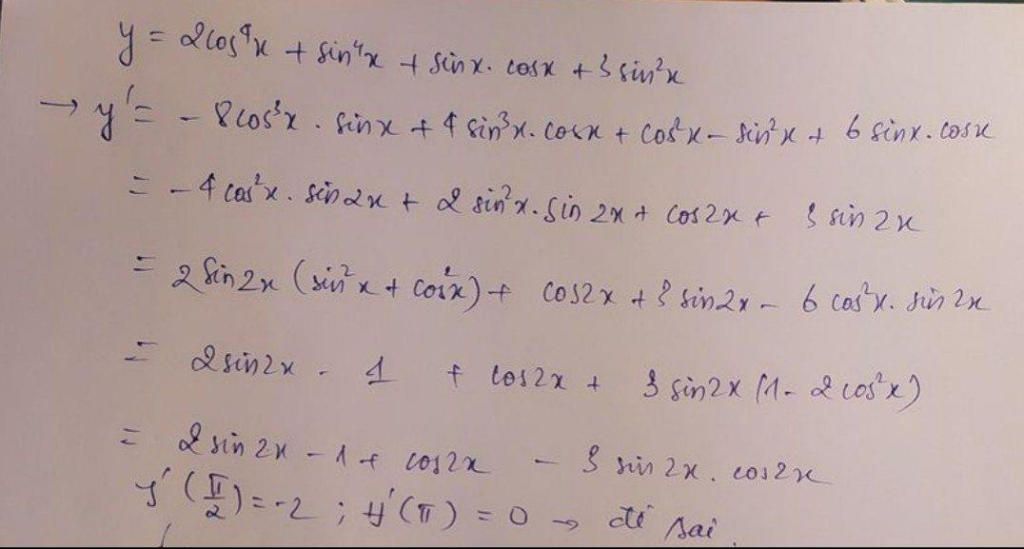 y = 2cos⁴x + sin⁴x + sinx. cosx + 3 sin²x
→ y' = - 8cos³x . sinx + 4 sin³x. cosx + cos²x - sin²x + 6 sinx. cosx
= - 4 cos²x. sin2x + 2 sin²x. sin 2x + cos2x + 3 sin 2x
= 2 sin2x (sin²x + cos²x) + cos2x + 3 sin2x - 6 cos²x. sin 2x
= 2sin2x - 1 + cos2x + 3 sin2x (1- 2cos²x)
= 2 sin 2x - 1 + cos2x - 3 sin 2x. cos2x
y' (π/2) = -2 ; y'(π) = 0 → đề sai.